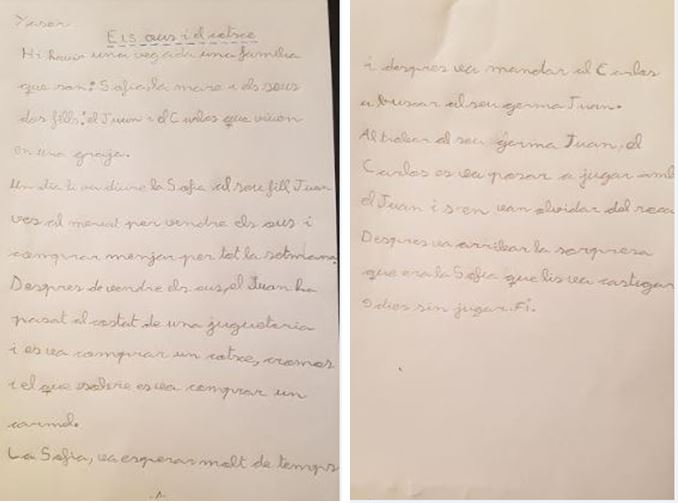 Yasser
Els ous i el cotxe
Hi havia una vegada una familia
que son: Sofia, la mare i els seus
dos fills: el Juan i el Carlos que vivien
en una granja.
Un dia li va diure la Sofia al seu fill Juan
ves al mercat per vendre els ous i
comprar menjar per tot la setmana.
Despres de vendre els ous, el Juan ha
pasat al costat de una jugueteria
i es va comprar un cotxe, cromos
i el que sobre es va comprar un
caramel.
La Sofia, va esperar molt de temps
1
i despres va mandar al Carlos
a buscar al seu germa Juan.
Al trobar al seu germa Juan, el
Carlos es va posar a jugar amb
el Juan i s'en van olvidar del
Despres va arribar la sorpresa
que era la Sofia que lis va castigar
9 dies sin jugar. Fi.